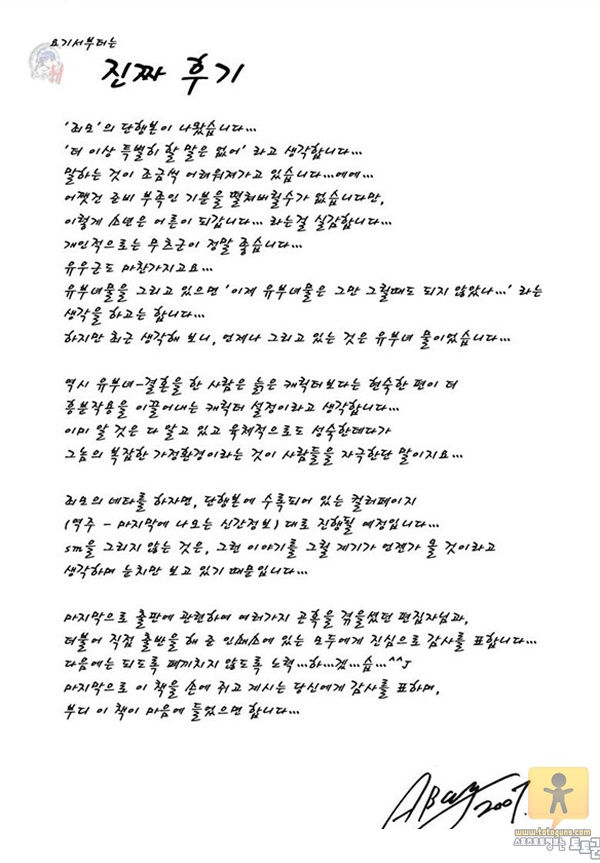 요기서부터는
진짜 후기
'죄모'의 단행본이 나왔습니다...
'더 이상 특별히 할 말은 없어' 라고 생각합니다...
말하는 것이 조금씩 어려워져가고 있습니다...에에...
어쨋건 준비 부족인 기분을 떨쳐버릴수가 없습니다만,
이렇게 소년은 어른이 되갑니다... 라는걸 실감합니다...
개인적으로는 무츠군이 정말 좋습니다...
유우군도 마찬가지고요...
유부녀물을 그리고 있으면 '이제 유부녀물은 그만 그릴때도 되지 않았나...' 라는
생각을 하고는 합니다...
하지만 최근 생각해 보니, 언제나 그리고 있는 것은 유부녀 물이었습니다...
역시 유부녀-결혼을 한 사람은 늙은 캐릭터보다는 현숙한 편이 더
흥분작용을 이끌어내는 캐릭터 설정이라고 생각합니다...
이미 알 것은 다 알고 있고 육체적으로도 성숙한데다가
그놈의 복잡한 가정환경이라는 것이 사람들을 자극한단 말이지요...
죄모의 네타를 하자면, 단행본에 수록되어 있는 컬러페이지
(역주 - 마지막에 나오는 신간정보) 대로 진행될 예정입니다...
sm을 그리지 않는 것은, 그런 이야기를 그릴 계기가 언젠가 올 것이라고
생각하며 눈치만 보고 있기 때문입니다...
마지막으로 출판에 관련하여 여러가지 곤혹을 겪을셨던 편집자님과,
더불어 직접 출반을 해 준 인쇄소에 있는 모두에게 진심으로 감사를 표합니다...
다음에는 되도록 폐끼치지 않도록 노력...하...겠...습...^^J
마지막으로 이 책을 손에 쥐고 계시는 당신에게 감사를 표하며,
부디 이 책이 마음에 들었으면 합니다...
2007.
www.totoguns.com
토토군